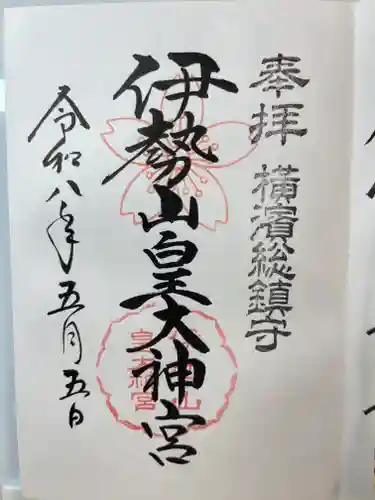 奉拝 横濱総鎮守
伊勢山皇大神宮
令和八年五月五日